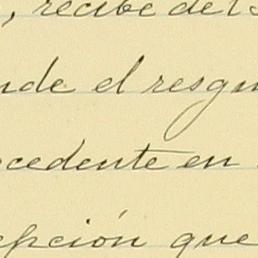 , recibe del S
nde el resgu
ocedente en
epción que